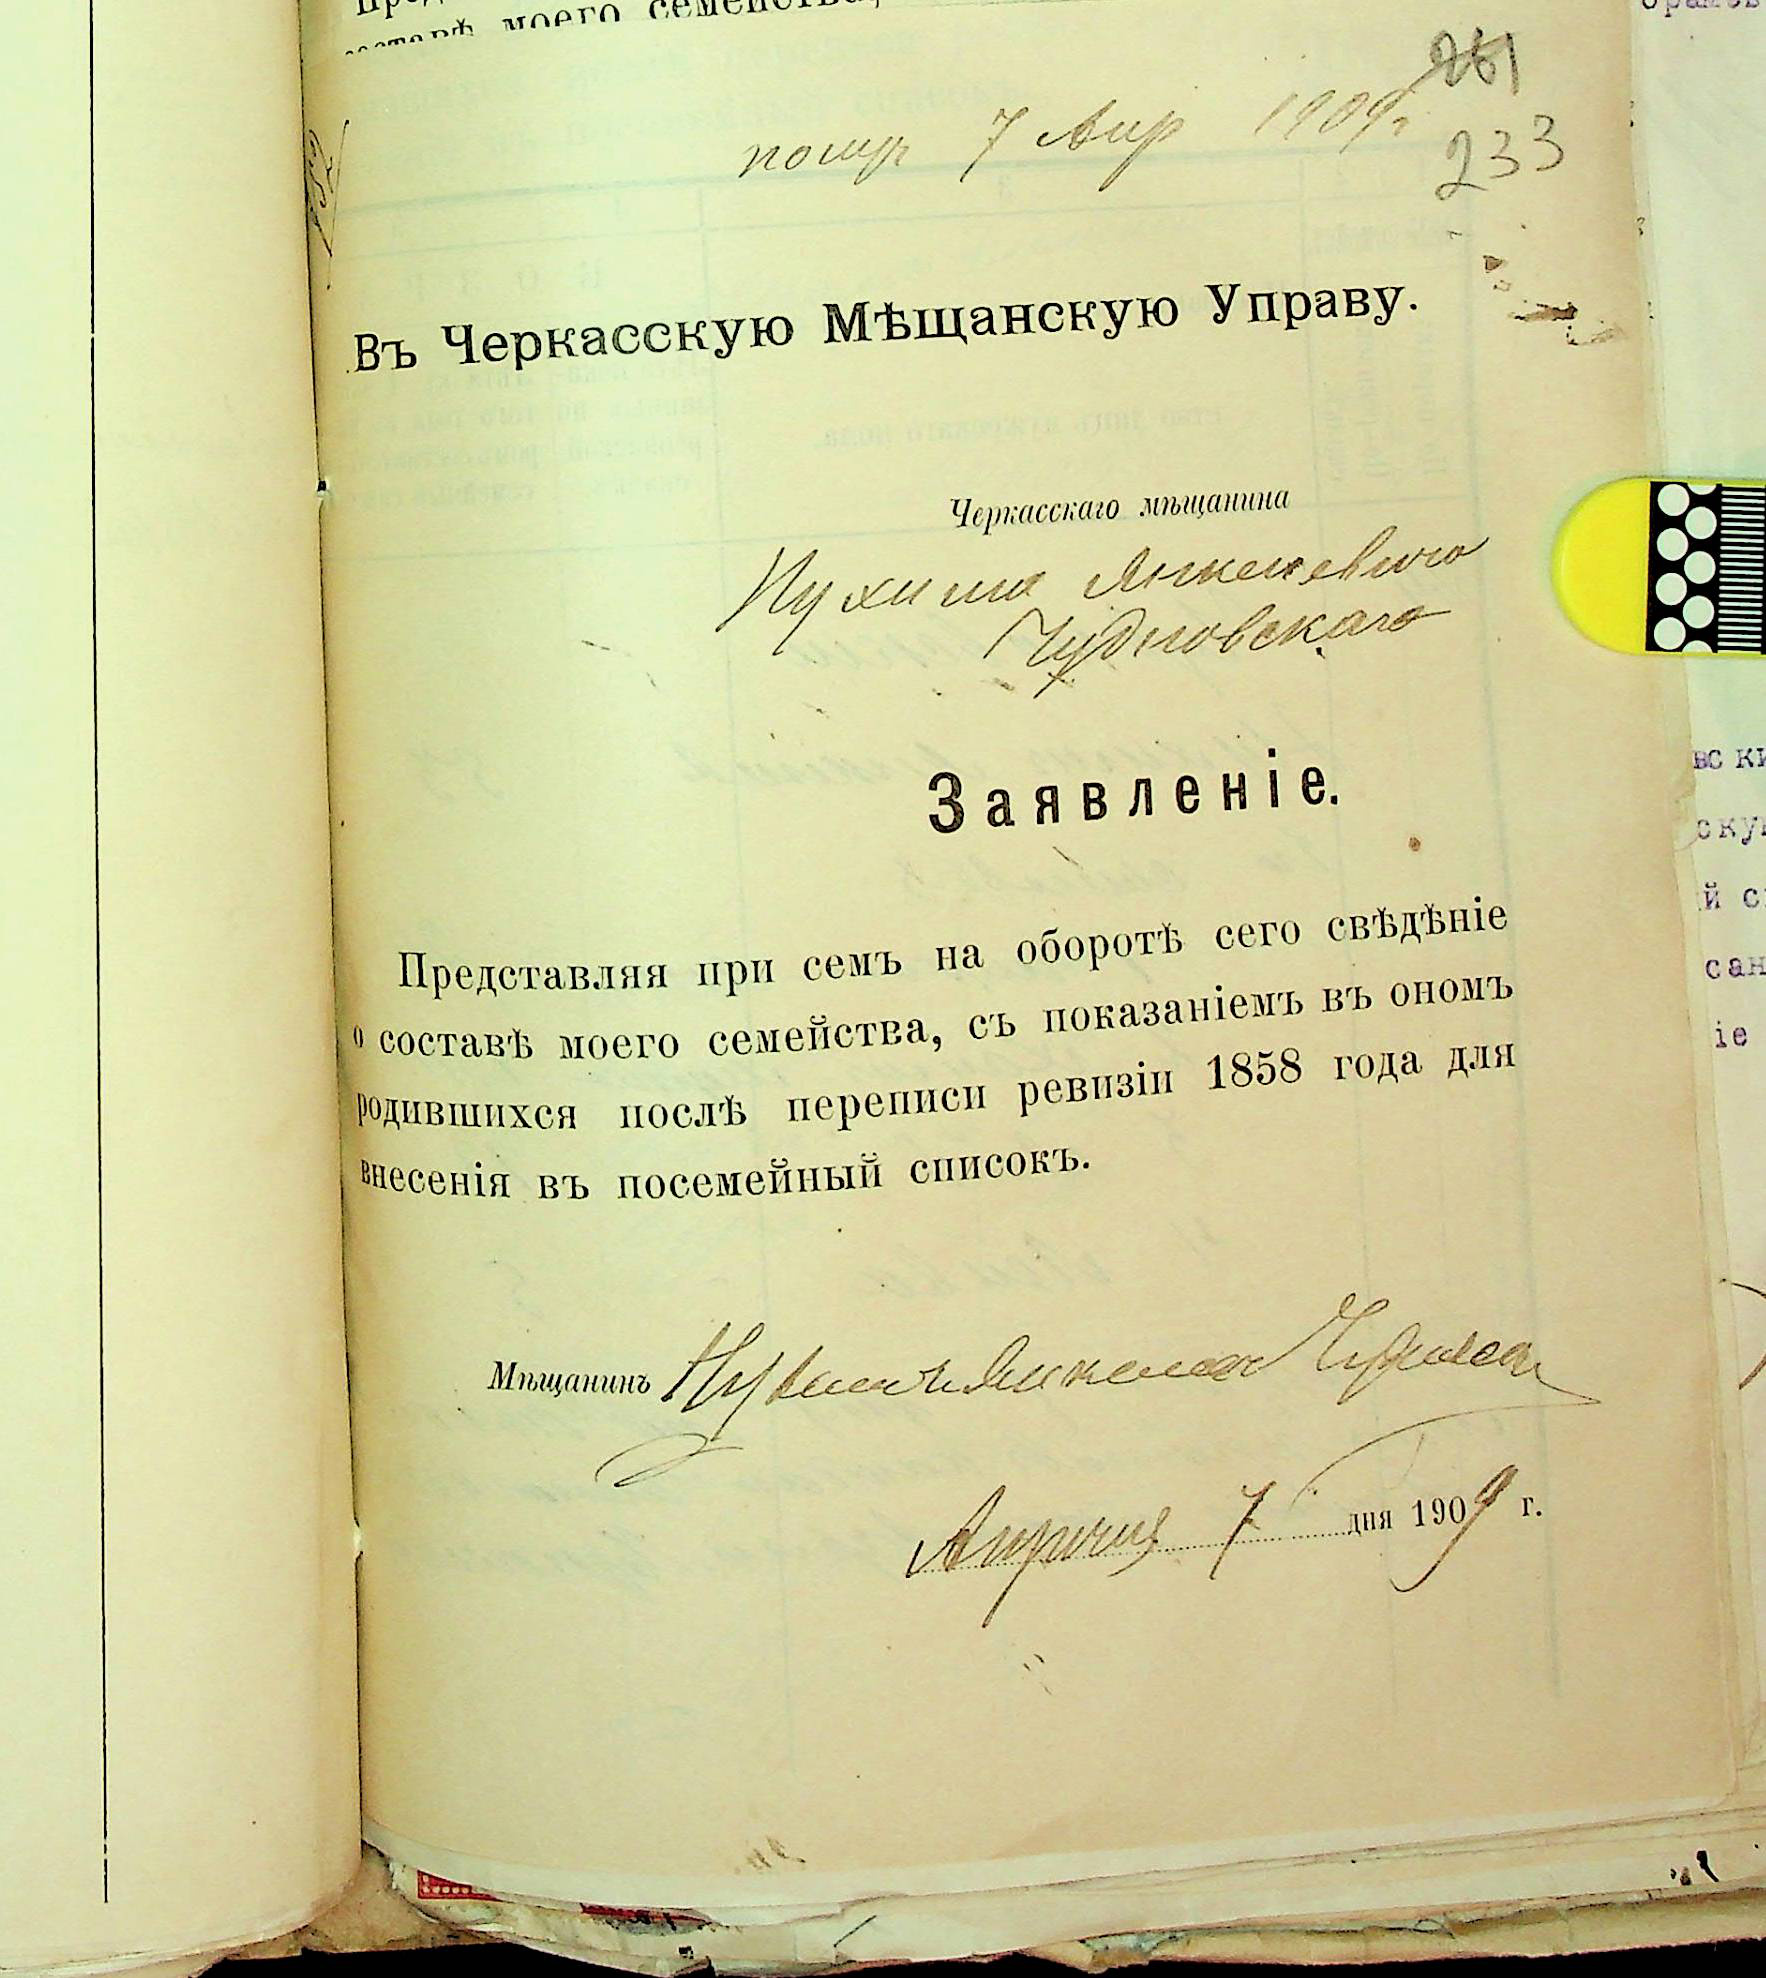 составѣ моего семейства,
261
получ 7 Апр 1909 г
233
Въ Черкасскую Мѣщанскую Управу.
Черкасскаго мѣщанина
Нухима Янкелевича
Чудновскаго
Заявленіе.
Представляя при семъ на оборотѣ сего свѣдѣніе
о составѣ моего семейства, съ показаніемъ въ ономъ
родившихся послѣ переписи ревизіи 1858 года для
внесенія въ посемейный списокъ.
Мѣщанинъ
Апрѣля 7 дня 1909 г.